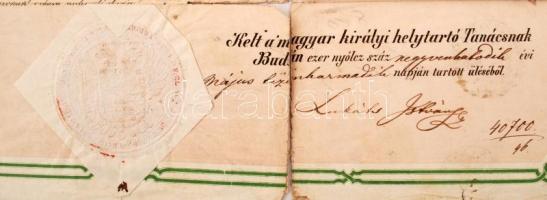 Kelt a' magyar királyi helytartó Tanácsnak
Budán ezer nyolcz száz negyvenhatodik évi
május tizenharmadik napján tartott üléséből.
Lukáts István
40700.
46.
darabanth